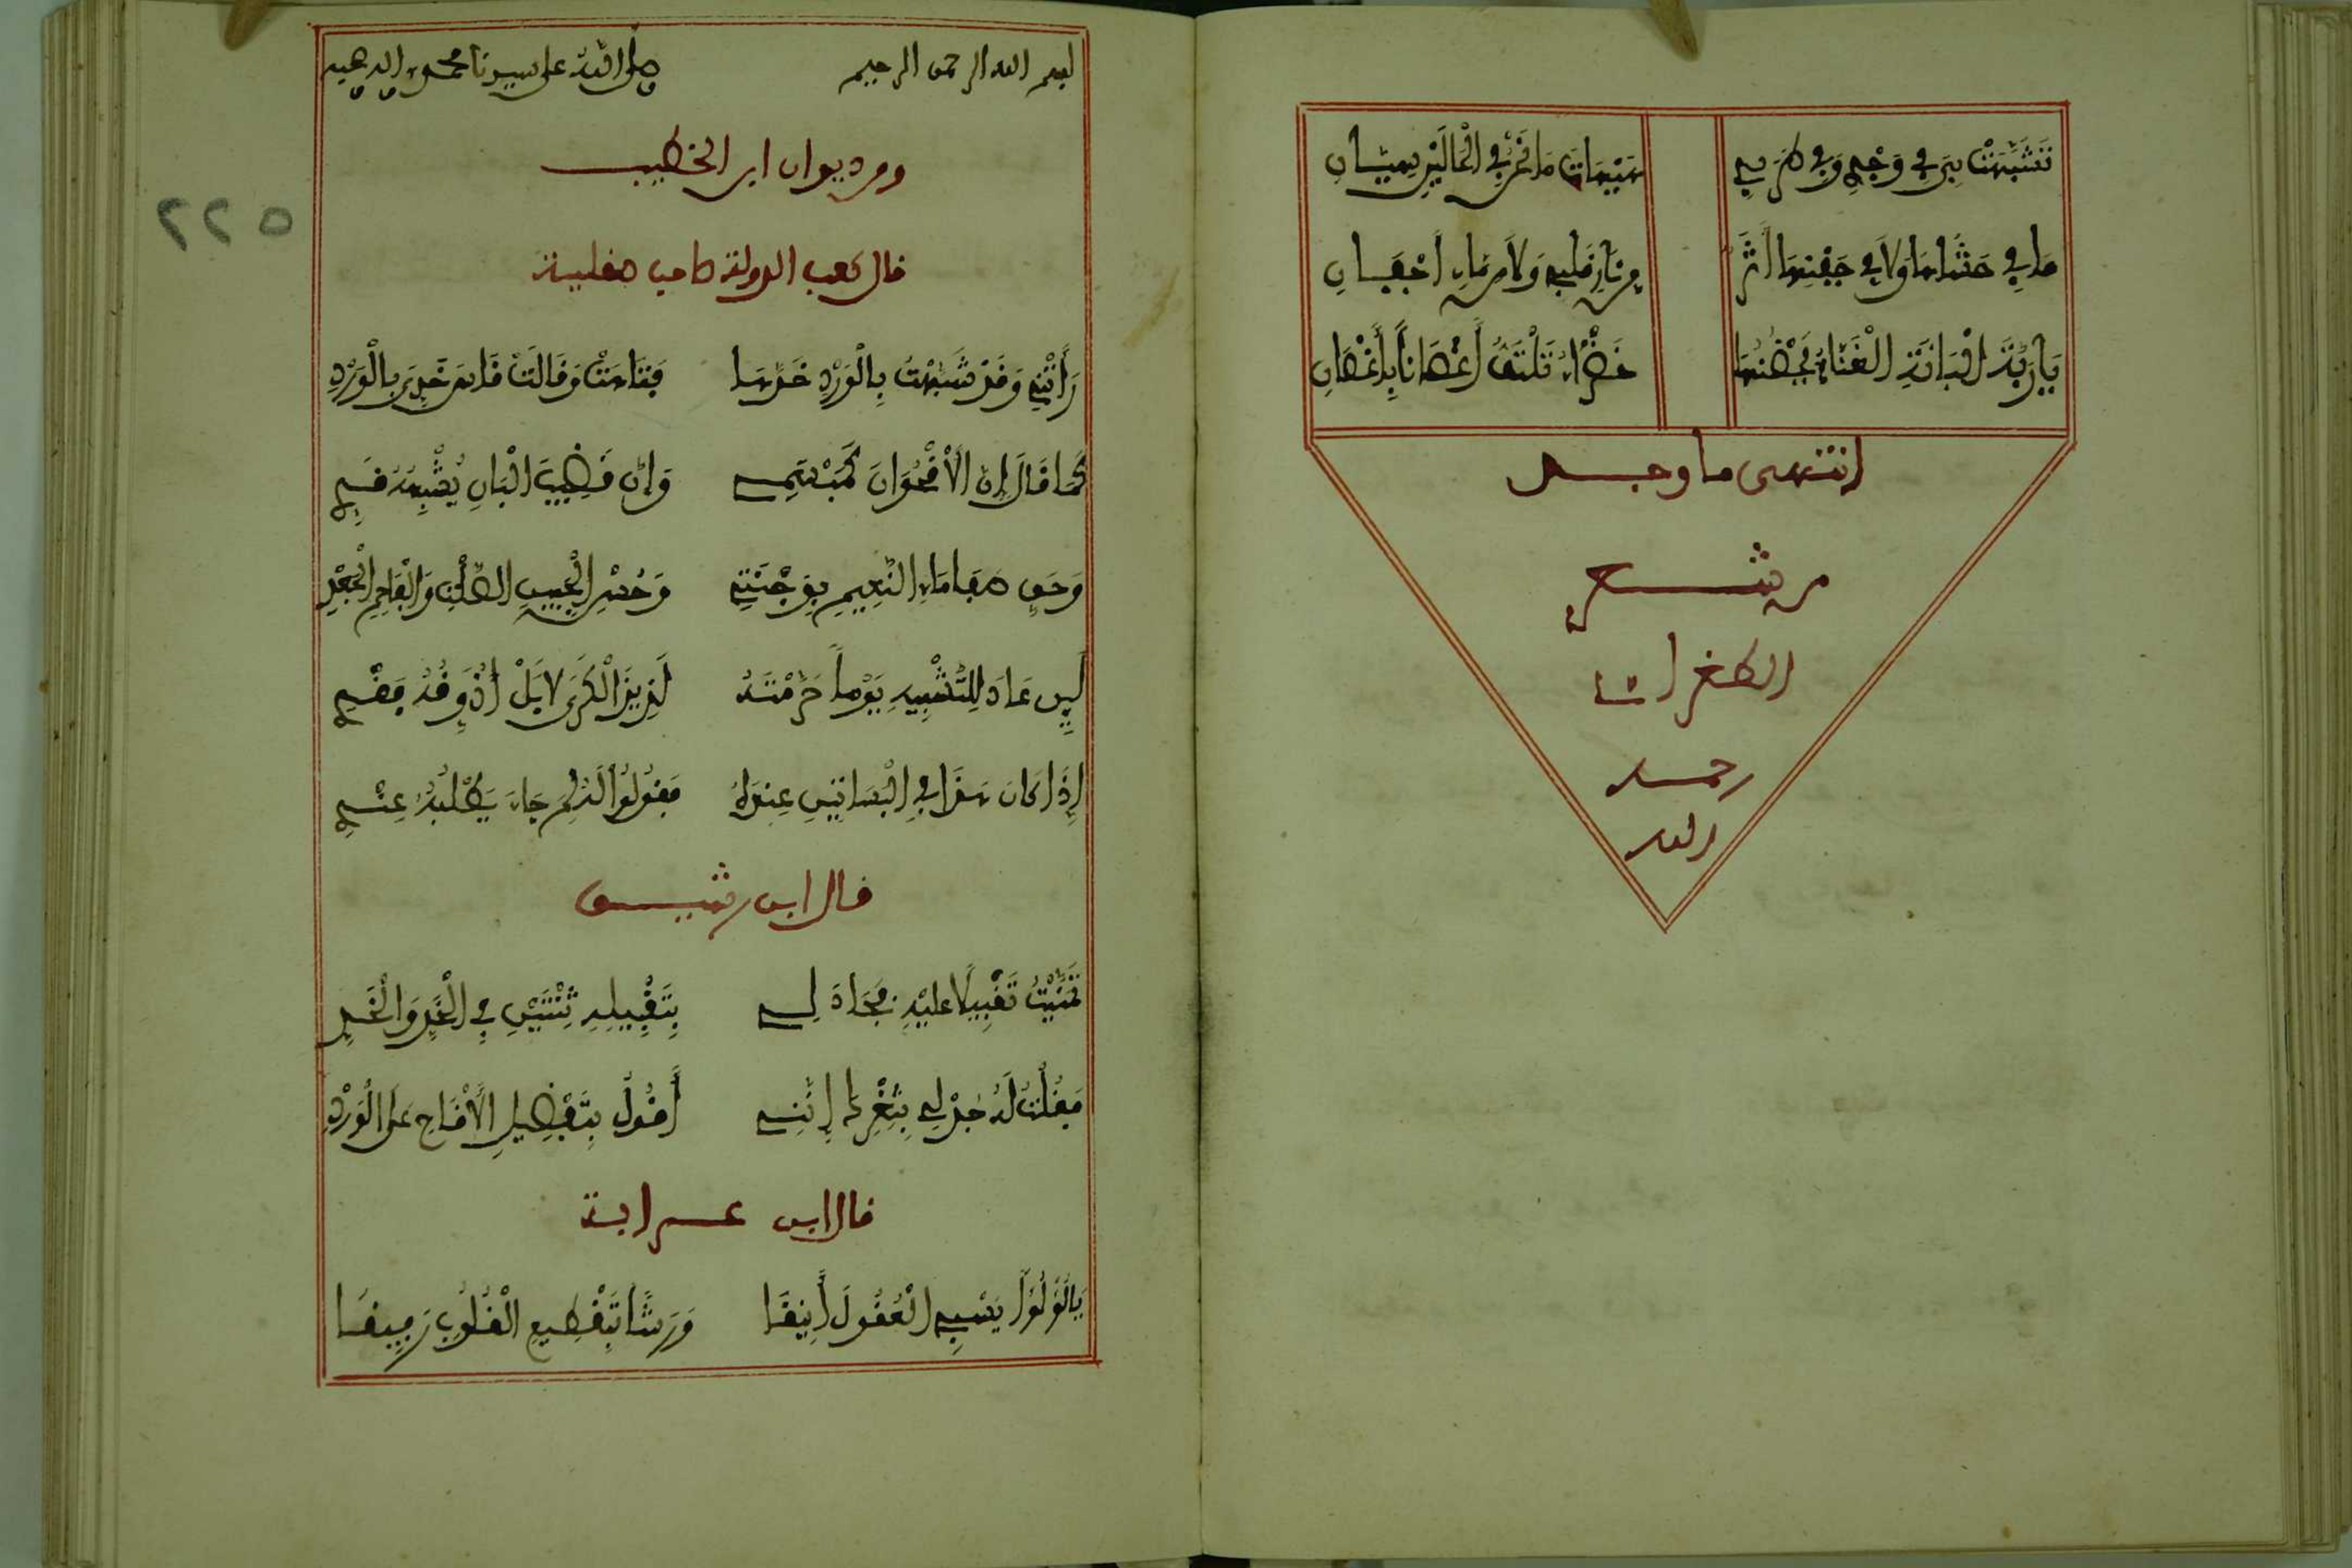 تَشَبَّهَتْ بِيَ فِي وَجْدِي وَفِي طَرَبِي هَيْهَاتَ مَا نَحْنُ فِي الْحَالَيْنِ سِيَّانِ
مَا فِي حَشَاهَا وَلاَ فِي جَفْنِهَا أَثَرٌ مِن نَارِ قَلْبِي وَلاَ مِن مَاءِ أَجْفَانِ
يَا رَبَّةَ الْبَانَةِ الْغَنَّاءِ تَحْضُنُهَا خَضْرَاءُ تَلْتَفُّ أَغْصَاناً بِأَغْصَانِ
انتهى ما وجد
من شعر
الطغراءي
رحمه
الله
بسم الله الرحمن الرحيم صلى الله على سيدنا محمد وآله وصحبه
ومن ديوان ابن الخطيب
قال الدولة صاحب صقلية
رَأَتْنِي وَقَدْ شَبَّهْتُ بِالْوَرْدِ خَدَّهَا فَتَاهَتْ وَقَالَتْ قَاسَ خَدِّيَ بِالْوَرْدِ
كَمَا قَالَ إِنَّ الأُقْحُوَانَ كَمَبْسَمِي وَإِنَّ قَضِيبَ الْبَانِ يُشْبِهُهُ قَدِّي
وَحَقِّ صَفَا مَاءِ النَّعِيمِ بِوَجْنَتِي وَحُسْنِ الْجَبِينِ الصَّلْتِ وَالْفَاحِمِ الْجَعْدِ
لَئِن عَادَ لِلتَّشْبِيهِ يَوْماً حَرَمْتُهُ لَذِيذَ الْكَرَى لا بَلْ أُذَوِّقُهُ فَقْدِي
إِذَا كَانَ هَذَا فِي الْبَسَاتِينِ عِندَهُ فَقُولُوا لَهُ لِمَ جَاءَ يَطْلُبُهُ عِنْدِي
قال ابن رشيق
تَمَنَّيْتُ تَقْبِيلًا عَلَيْهِ فَجَادَ لِي بِتَقْبِيلِهِ ثِنْتَيْنِ فِي الْخَدِّ وَالْخَدِّ
فَقُلْتُ لَهُ جُدْ لِي بِثَغْرِكَ إِنَّنِي أَقُولُ بِتَفْضِيلِ الأَقَاحِ عَلَى الْوَرْدِ
قال ابن عرابة
يَا لُؤْلُؤاً يَسْبِي الْعُقُولَ أَنِيقَا وَرَشاً بِتَقْطِيعِ الْقُلُوبِ رَفِيقَا
٢٢٥